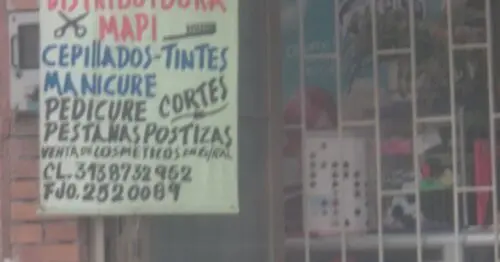 DISTRIBUIDORA
MAPI
CEPILLADOS-TINTES
MANICURE
PEDICURE CORTES
PESTAÑAS POSTIZAS
VENTA DE COSMETICOS EN G/RAL
CL. 3138732952
FJO. 2520089